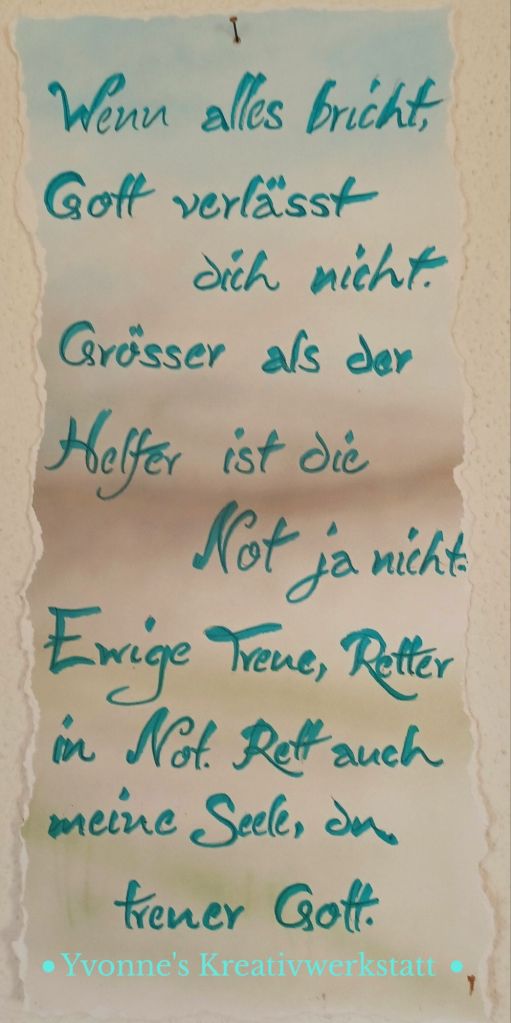 Wenn alles bricht,
Gott verlässt
dich nicht.
Grösser als der
Helfer ist die
Not ja nicht.
Ewige Treue, Retter
in Not. Rett auch
meine Seele, du
treuer Gott.
• Yvonne's Kreativwerkstatt •